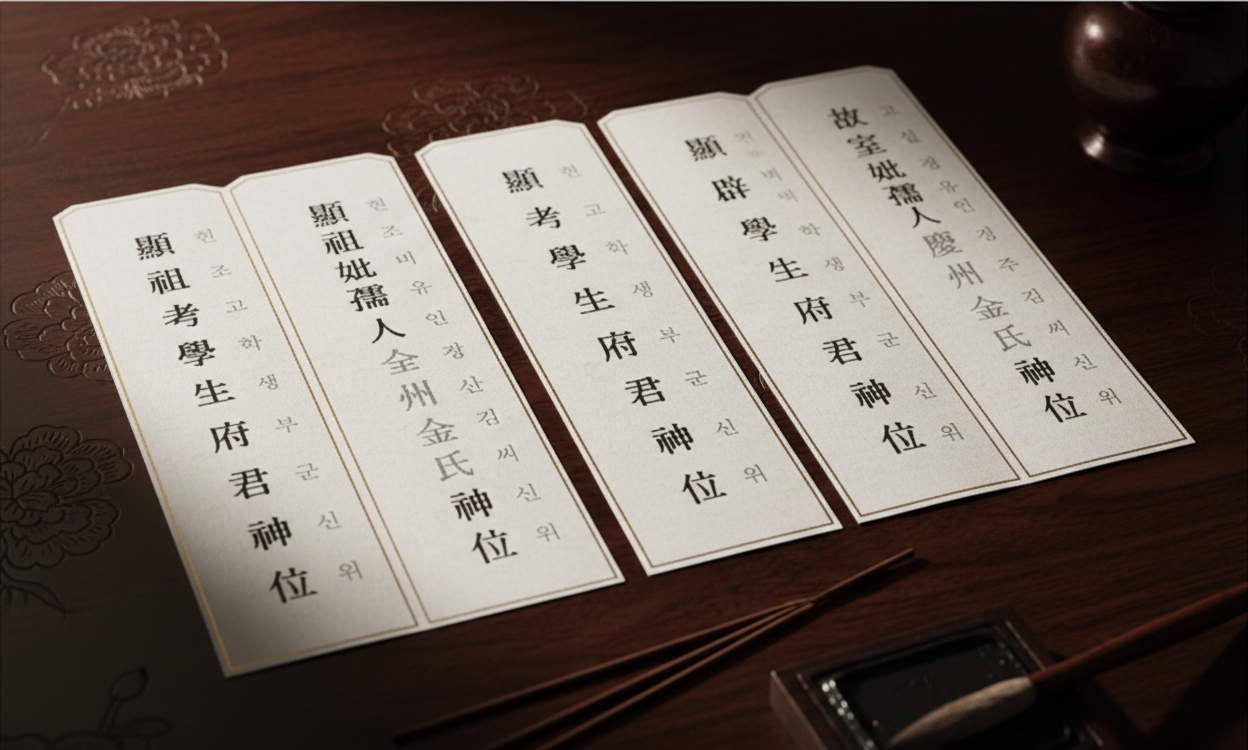 顯祖考學生府君神位
현조고학생부군신위
顯祖妣孺人全州金氏神位
현조비유인장산김씨신위
顯考學生府君神位
현고학생부군신위
顯辟學生府君神位
학생부군신위
故室妣孺人慶州金氏神位
고실정유인장주김씨신위